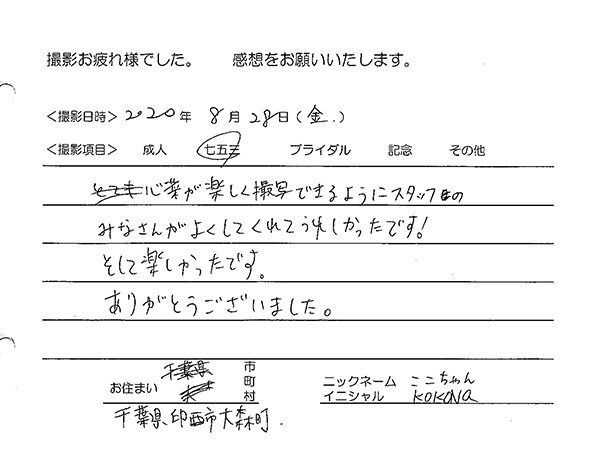 撮影お疲れ様でした。 感想をお願いいたします。
<撮影日時> 2020年 8月 28日(金.)
<撮影項目> 成人 七五三 ブライダル 記念 その他
とても心菜が楽しく撮写できるようにスタッフの
みなさんがよくしてくれてうれしかったです!
そして楽しかったです。
ありがとうございました。
お住まい 千葉県 市町村
千葉県印西市大森町.
ニックネーム ここちゃん
イニシャル KOKONA